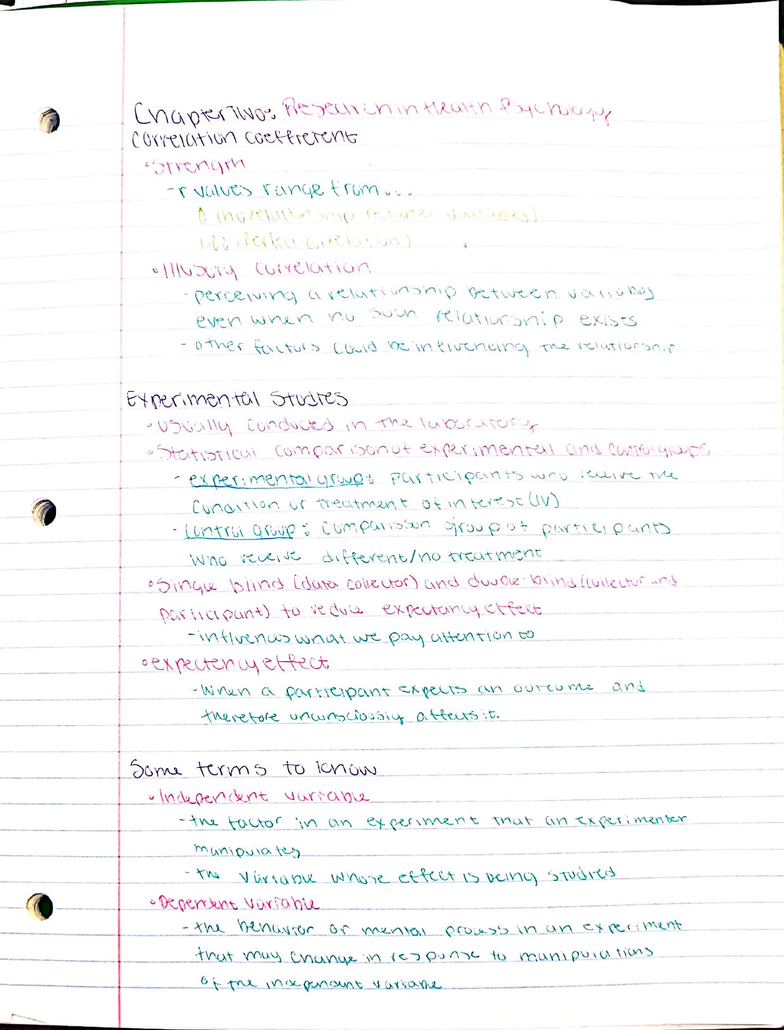 Chapter Two: Research in Health Psychology
Correlation coefficient
• Strength
- r values range from...
0 (no relationship between variables)
1.00 (perfect correlation)
• Illusory correlation
- perceiving a relationship between variables
even when no such relationship exists
- other factors could be influencing the relationship
Experimental Studies
• Usually conducted in the laboratory
• Statistical comparison of experimental and control groups
- experimental group: participants who receive the
condition or treatment of interest (IV)
- control group: comparison group of participants
who receive different/no treatment
• Single blind (data collector) and double-blind (collector and
participant) to reduce expectancy effect
- influences what we pay attention to
• expectency effect
- When a participant expects an outcome and
therefore unconsciously affects it.
Some terms to know
• Independent variable
- the factor in an experiment that an experimenter
manipulates
- the variable whose effect is being studied
• Dependent variable
- the behavior or mental process in an experiment
that may change in response to manipulations
of the independent variable